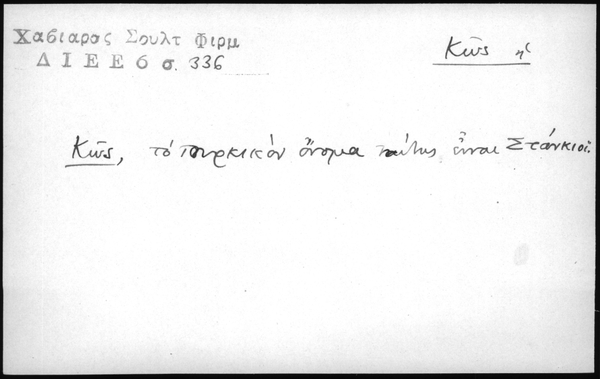 Χαβιαρας Σουλτ Φιρμ
ΔΙΕΕ 6 σ. 336
Κῶς ἡ
Κῶς, τὸ τουρκικὸν ὄνομα ταύτης εἶναι Στάνκιοϊ.